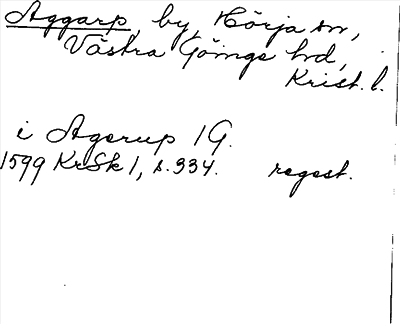 Aggarp, by, Hörja sn,
Västra Göinge hd,
Krist. l.
i Agerup 1 G.
1599 KrSk 1, s. 334. regest.